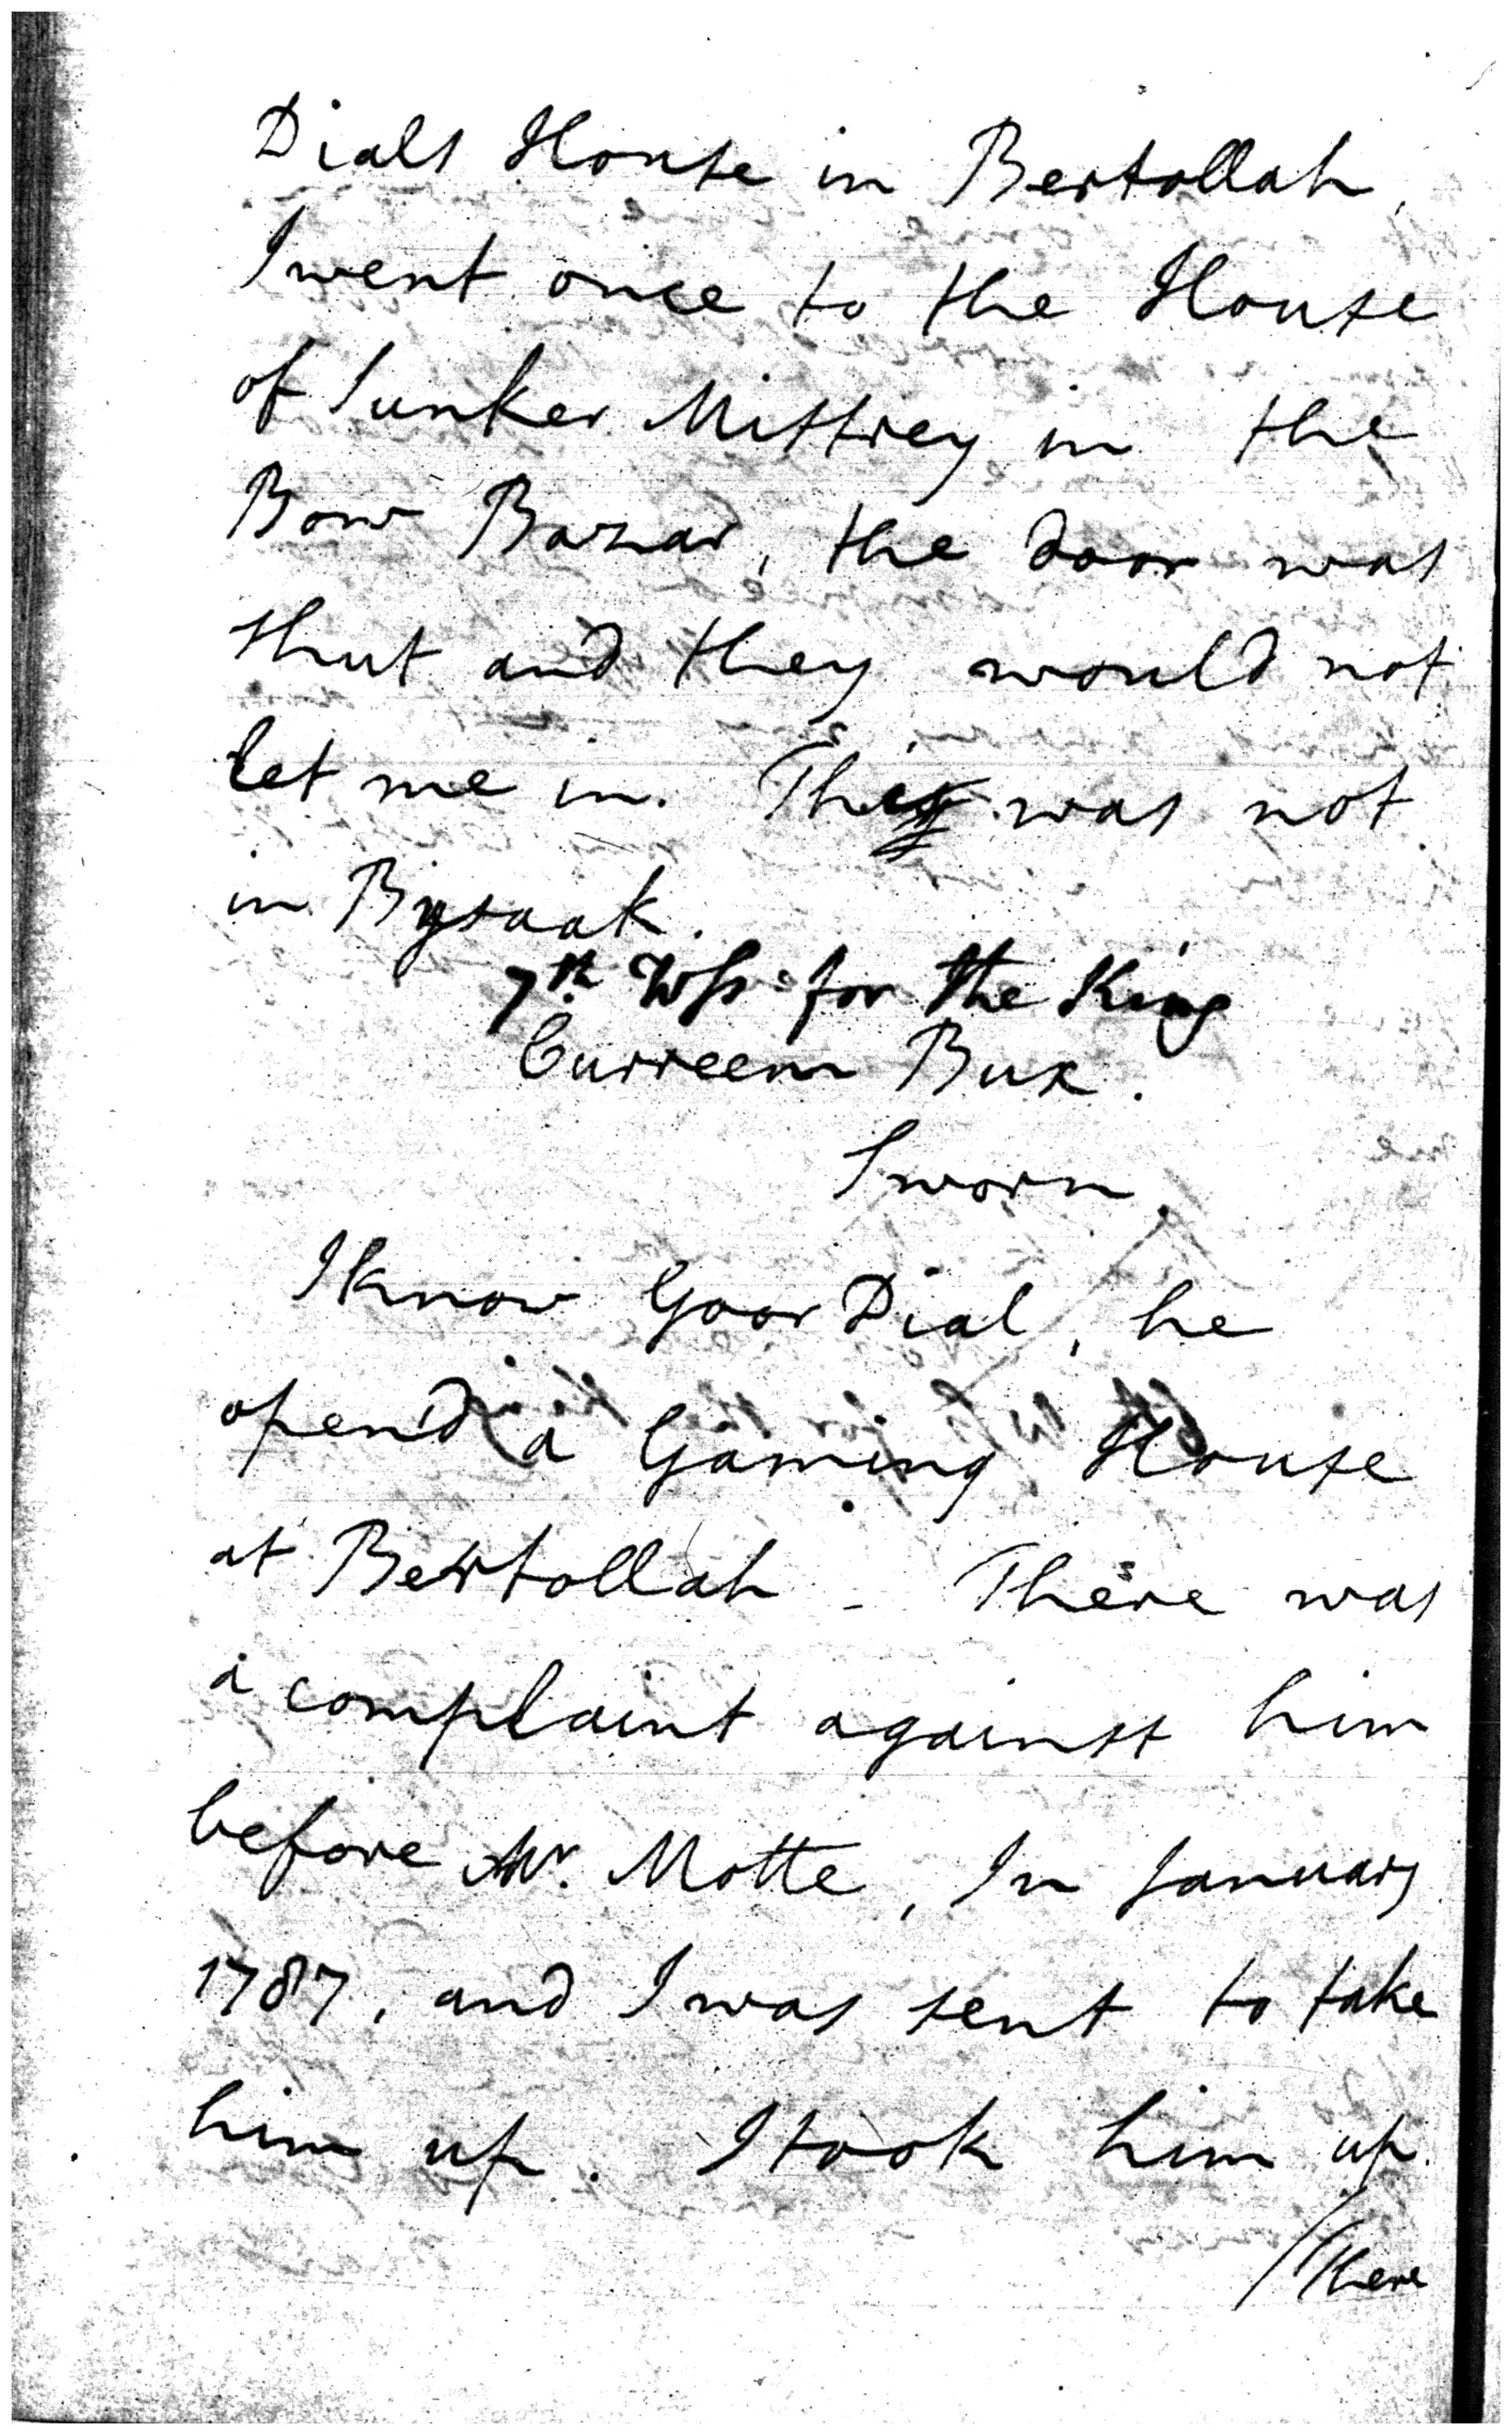 Dials House in Bertollah,
I went once to the House
of Sunker Mistrey in the
Bow Bazar, the door was
shut and they would not
let me in. This was not
in Bysaak.
7th Wss for the King
Curreem Bux.
Sworn.
I know Goor Dial, he
open'd a Gaming House
at Bertollah - There was
a complaint against him
before Mr. Motte, In January
1787, and I was sent to take
him up. I took him up.
/There